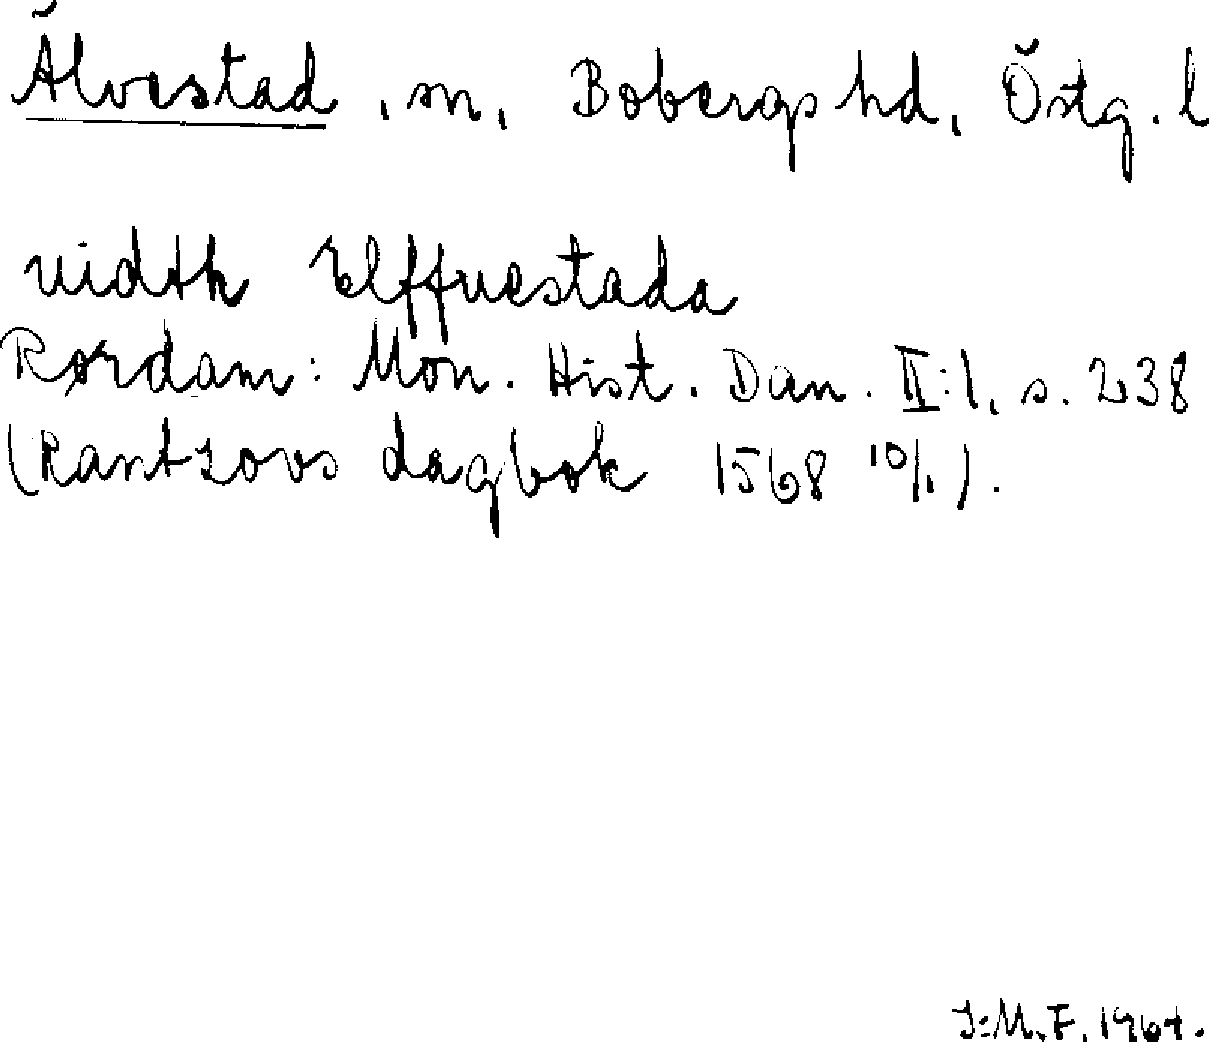 Älvestad, sn, Bobergs hd, Östg. l
vidth Elffuestada
Rørdam: Mon. Hist. Dan. II:1, s. 238
(Rantzovs dagbok 1568 10/1).
I:M.F. 1964.